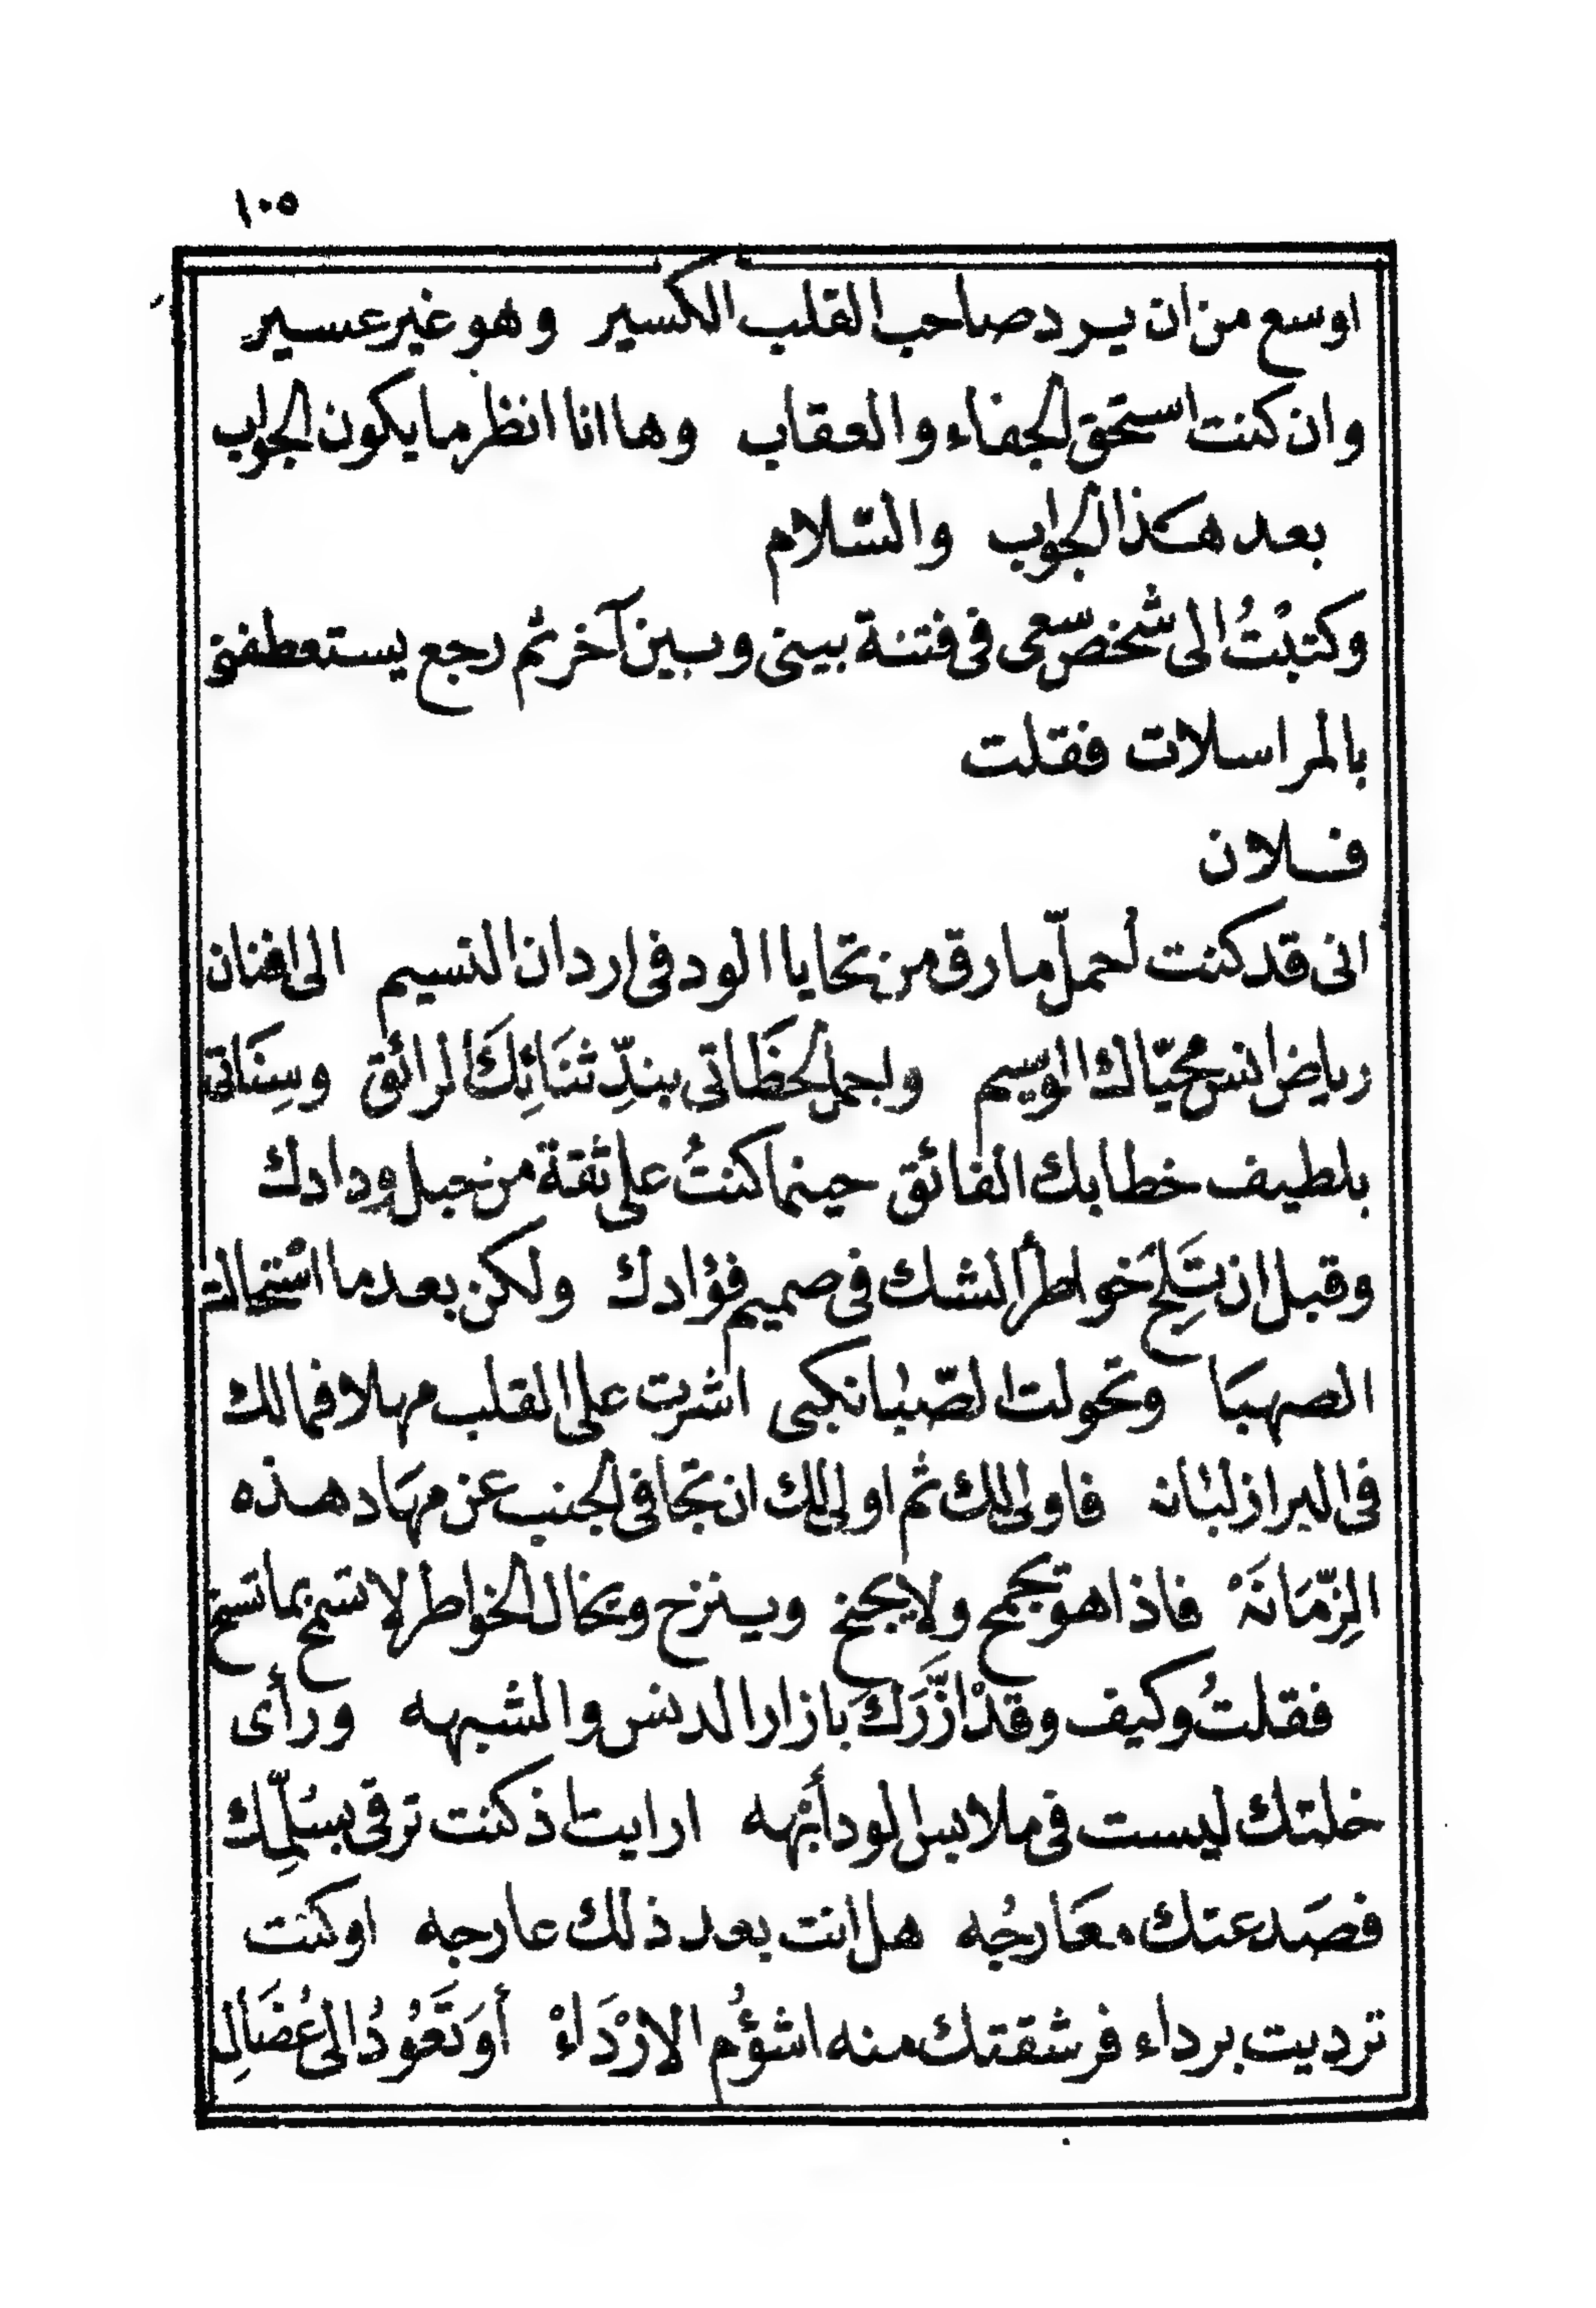 ١٠٥
اوسع من ان يرد صاحب القلب الكسير وهو غير عسير
وان كنت استحق الجفاء والعقاب وها انا انظر ما يكون الجواب
بعد هذا الجواب والسّلام
وكتبْتُ الى شخص سعى فى فتنة بينى وبين آخر ثم رجع يستعطفنى
بالمراسلات فقلت
فلان
انى قد كنت اُحملّ ما رق من تحايا الود فى اردان النسيم الى افنان
رياض انس محيّاك الوسيم واجمل لحظَاتى بندِّ ثنَائِكَ الرائق وسِنَاتى
بلطيف خطابك الفائق حينما كنتُ على ثقة من حبل ودادك
وقبل ان تَلِجَ خواطرُ الشك فى صميم فؤادك ولكن بعد ما اسْتحالت
الصهبَا وتحولت الصّبا نكبى اشرت على القلب مهلا فمالك
فى البراز لبُانه فاولى لك ثم اولى لك ان تجافى الجنب عن مهَاد هذه
الزِّمَانَهْ فاذا هو يجمح ولا يجنح وينزح وبخال الخواطر لا تسمح بما تسنح
فقلتُ وكيف وقدْ ازَّرَكَ بازار الدنس والشبهه ورأى
خلتك ليست فى ملابس الود أُبّهه ارايت اذ كنت ترقى بسُلّمِك
فصَد عنك معَارجُه هل انت بعد ذلك عارجه او كنت
ترديت برداء فرشقتك منه اشؤُم الارْدَاءْ أوَتَعُودُ الى عُضَالِ